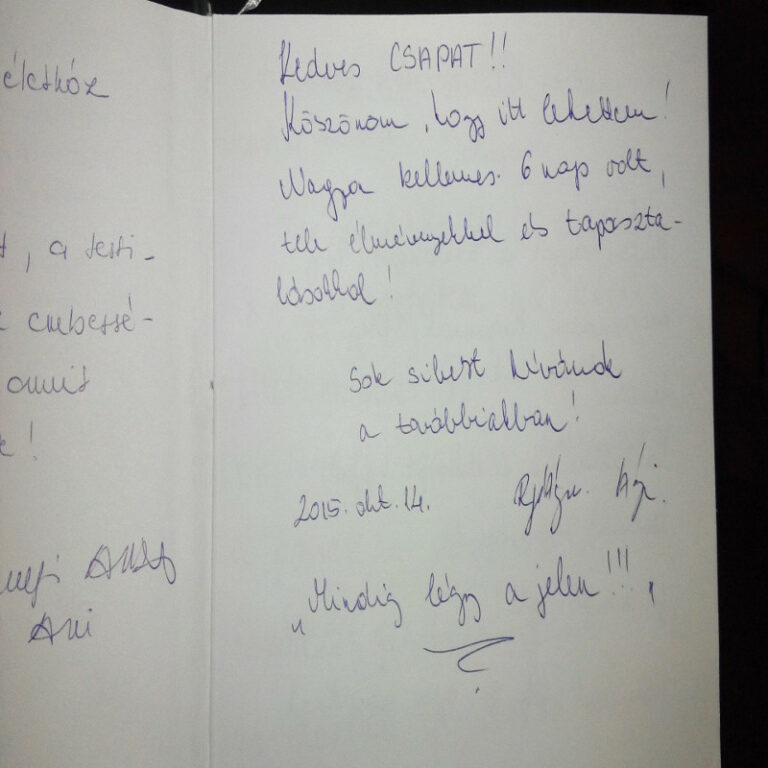 életköz
t, a testi-
embessé-
amit
e!
Anita
Ani
Kedves CSAPAT!!
Köszönöm, hogy itt lehettem!
Nagyon kellemes 6 nap volt,
tele élményekkel és tapaszta-
lásokkal!
Sok sikert kívánok
a továbbiakban!
2015. okt. 14.
Ági.
„Mindig légy a jelen!!!"